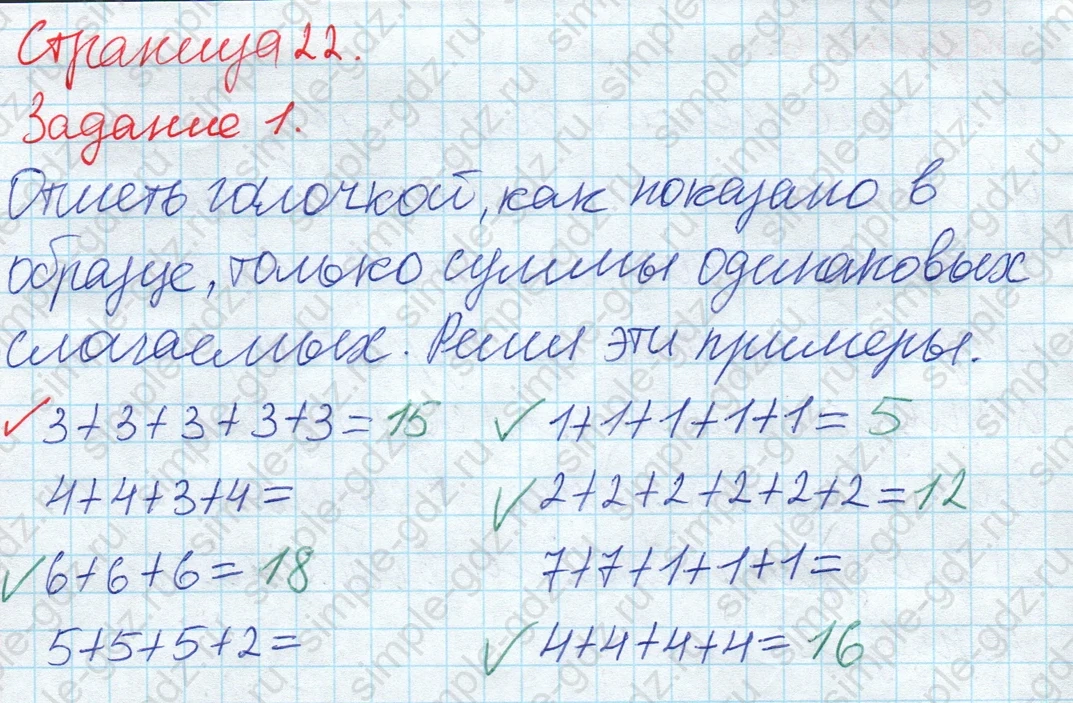 Страница 22.
Задание 1.
Отметь галочкой, как показано в
образце, только суммы одинаковых
слагаемых. Реши эти примеры.
✓ 3+3+3+3+3=15 ✓ 1+1+1+1+1=5
4+4+3+4= ✓ 2+2+2+2+2+2=12
✓ 6+6+6=18 7+7+1+1+1=
5+5+5+2= ✓ 4+4+4+4=16
simple-gdz.ru